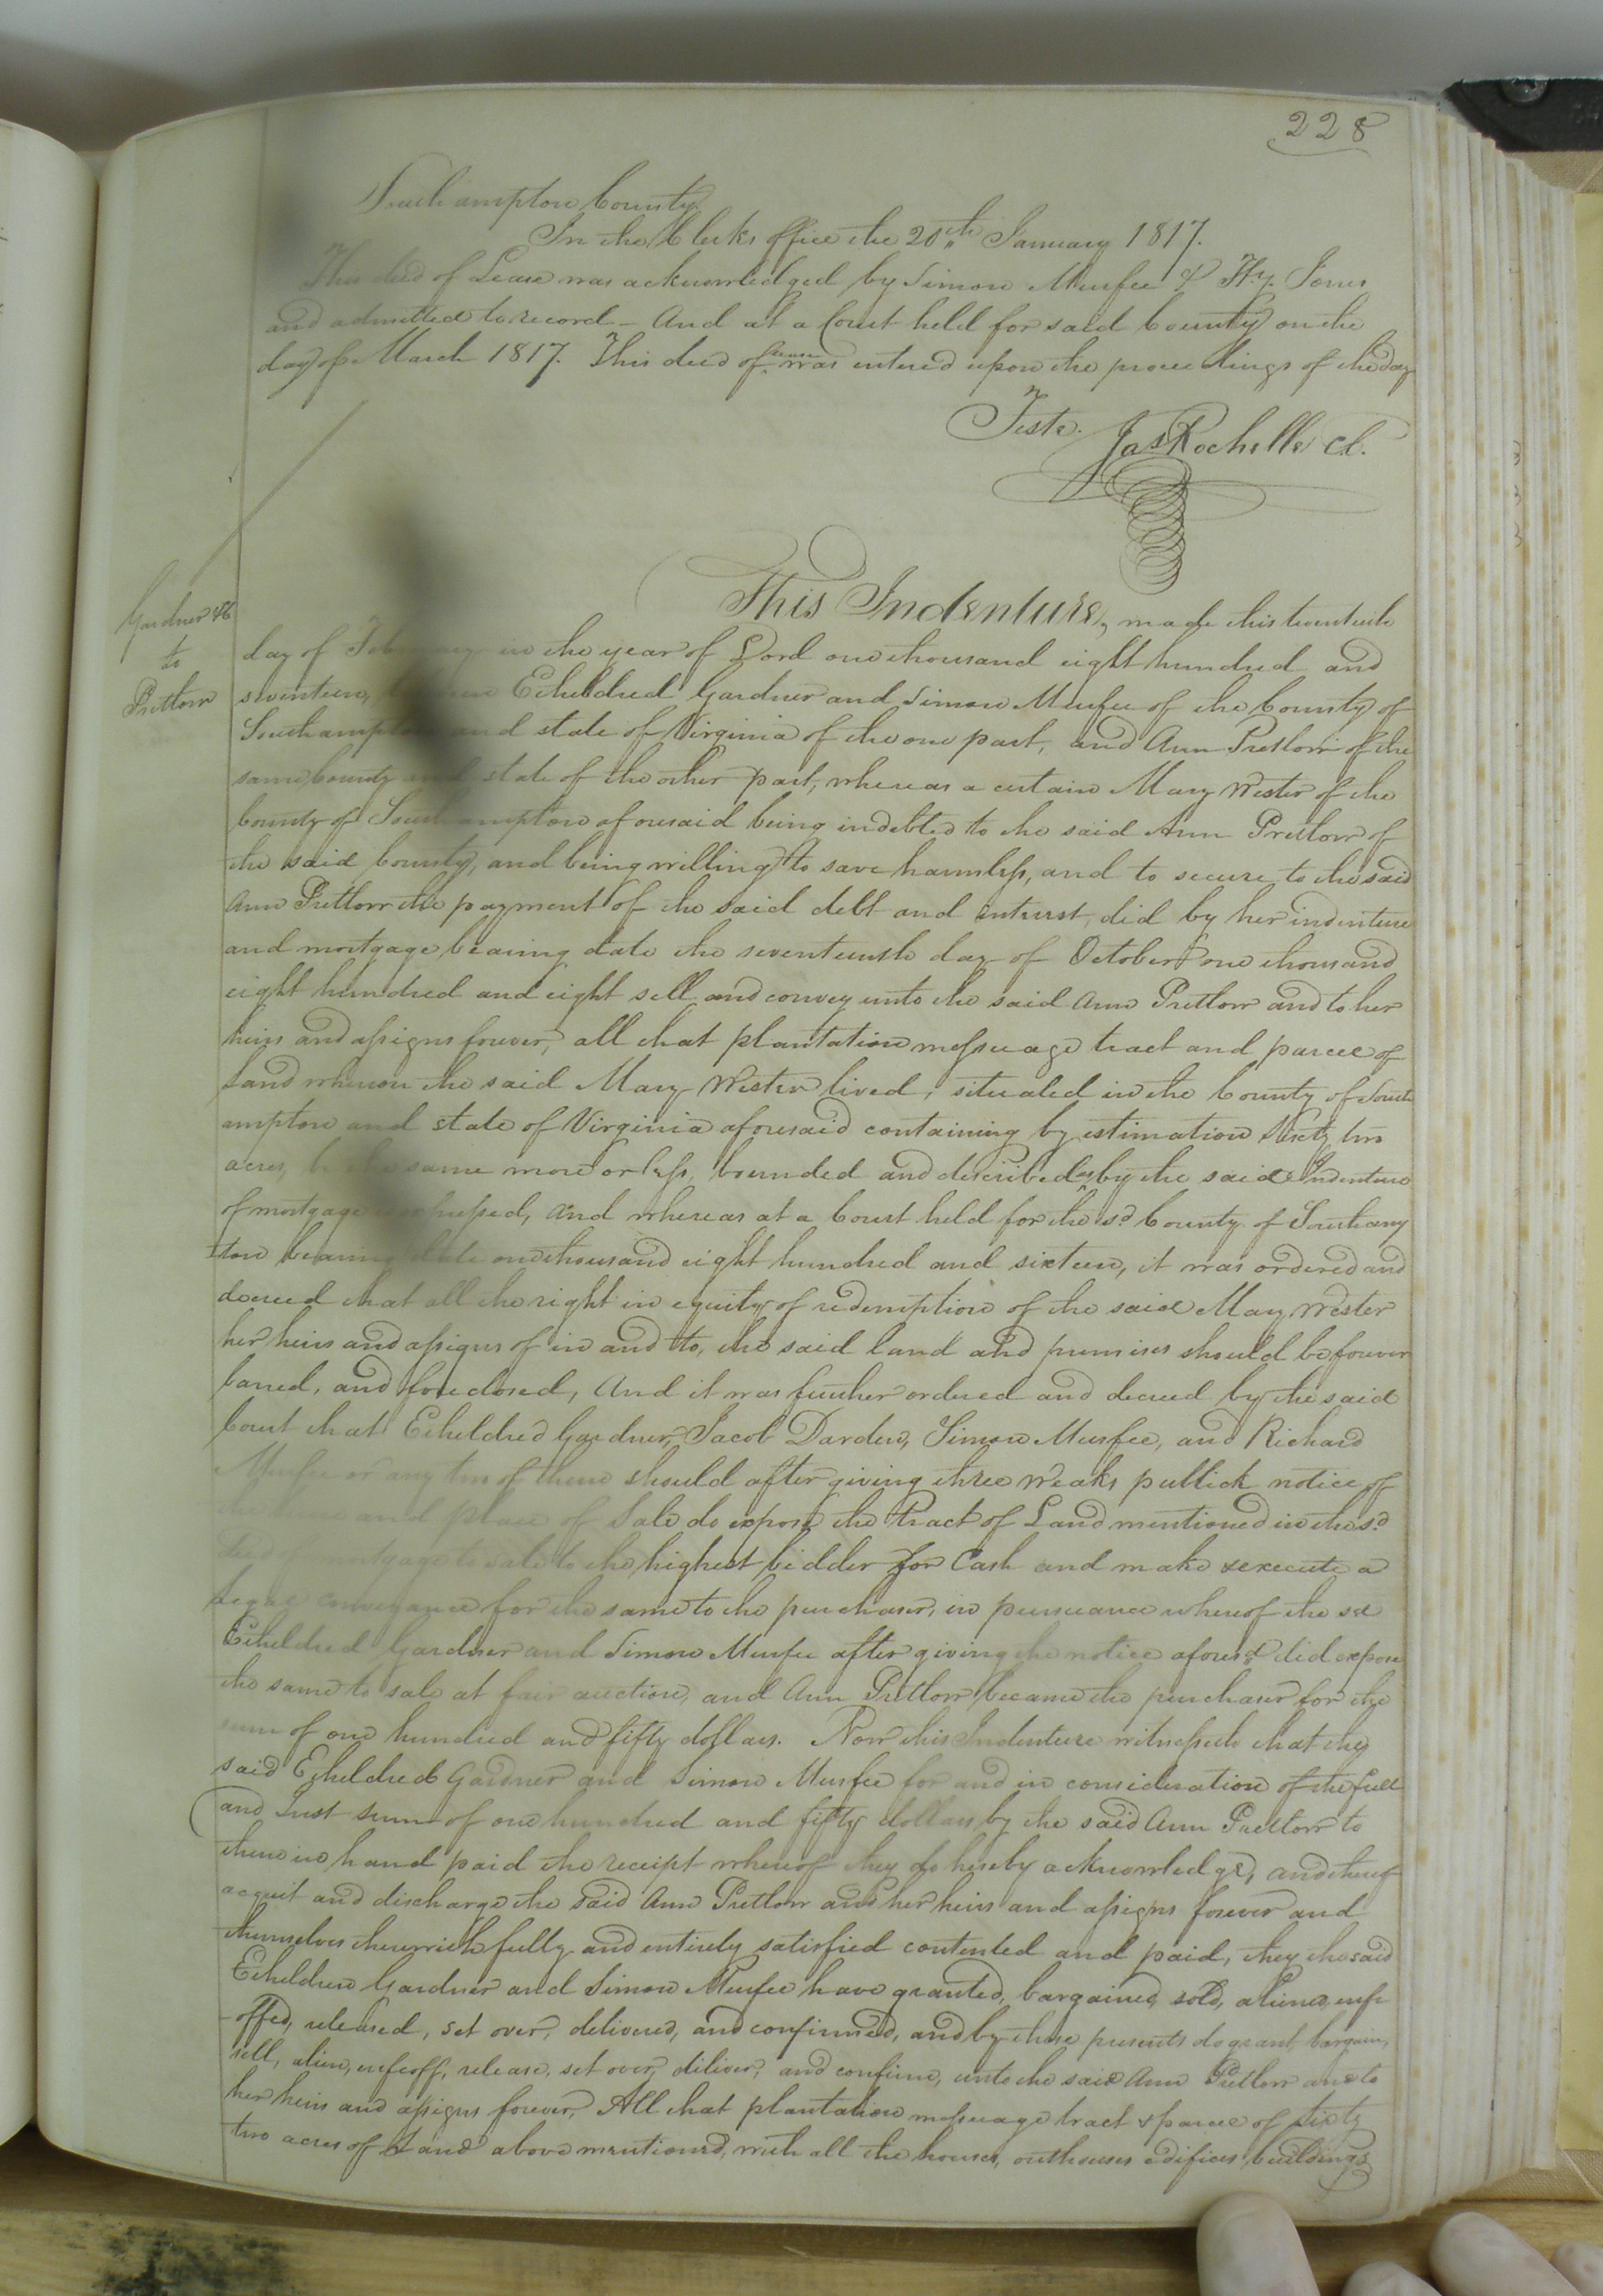 228
Southampton County
In the Clerks office the 20th January 1817.
This deed of Lease was acknowledged by Simon Murfee & Hy. Jones
and admitted to record – And at a Court held for said County on the
day of March 1817. This deed of lease was entered upon the proceedings of the day
Teste. Jas Rochelle Cl.
Gardner &c
to
Pretlow
This Indenture, made this twentieth
day of February in the year of Lord one thousand eight hundred and
seventeen, between Etheldred Gardner and Simon Murfee of the County of
Southampton and state of Virginia of the one part, and Ann Pretlow of the
same County and state of the other part, whereas a certain Mary Wester of the
County of Southampton aforesaid being indebted to the said Ann Pretlow of
the said County, and being willing to save harmless, and to secure to the said
Ann Pretlow the payment of the said debt and interest, did by her indenture
and mortgage bearing date the seventeenth day of October one thousand
eight hundred and eight sell and convey unto the said Ann Pretlow and to her
heirs and assigns forever, all that plantation messuage tract and parcel of
Land whereon the said Mary Wester lived, situated in the County of South
ampton and state of Virginia aforesaid containing by estimation Sixty two
acres, be the same more or less, bounded and described as by the said Indenture
of mortgage expressed, And whereas at a Court held for the sd. County of Southamp
ton bearing date one thousand eight hundred and sixteen, it was ordered and
decreed that all the right in equity of redemption of the said Mary Wester
her heirs and assigns of in and to, the said land and premises should be forever
bared, and foreclosed, And it was further ordered and decreed by the said
Court that Etheldred Gardner, Jacob Darden, Simon Murfee, and Richard
Murfee or any two of them should after giving three weaks publick notice of
and place of Sale do expose the tract of Land mentioned in the sd.
mortgage to sale to the highest bidder for Cash and make & execute a
Legal conveyance for the same to the purchaser, in pursuance whereof the sd
Etheldred Gardner and Simon Murfee after giving the notice aforesd. did expose
the same to sale at fair auction, and Ann Pretlow became the purchaser for the
sum of one hundred and fifty dollars. Now this Indenture witnesseth that they
said Etheldred Gardner and Simon Murfee for and in consideration of the full
and Just sum of one hundred and fifty dollars by the said Ann Pretlow to
them in hand paid the receipt whereof they do hereby acknowledge, and thereof
acquit and discharge the said Ann Pretlow and her heirs and assigns forever and
themselves therewith fully and entirely satisfied contented and paid, they the said
Etheldred Gardner and Simon Murfee have granted, bargained, sold, aliened, enfe
offed, released, set over, delivered, and confirmed, and by these presents do grant, bargain,
sell, alien, enfeoff, release, set over, diliver, and confirm, unto the said Ann Pretlow and to
her heirs and assigns forever, All that plantation messuage tract & parcel of sixty
two acres of Land above mentioned, with all the houses, outhouses edifices, buildings